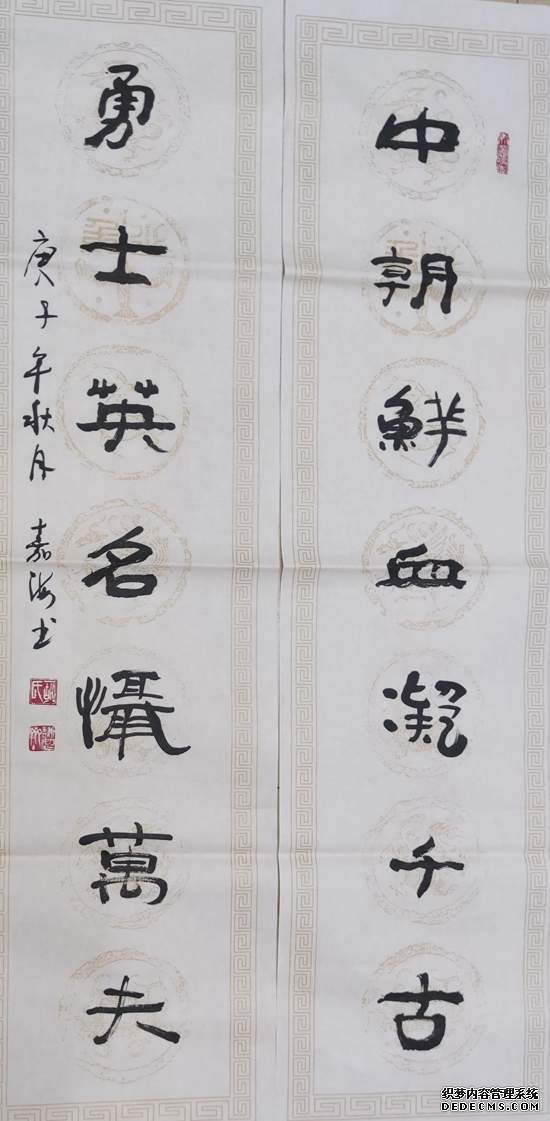 中朝鮮血凝千古
勇士英名懾萬夫
庚子年秋月 嘉海书
织梦内容管理系统
DEDECMS.COM